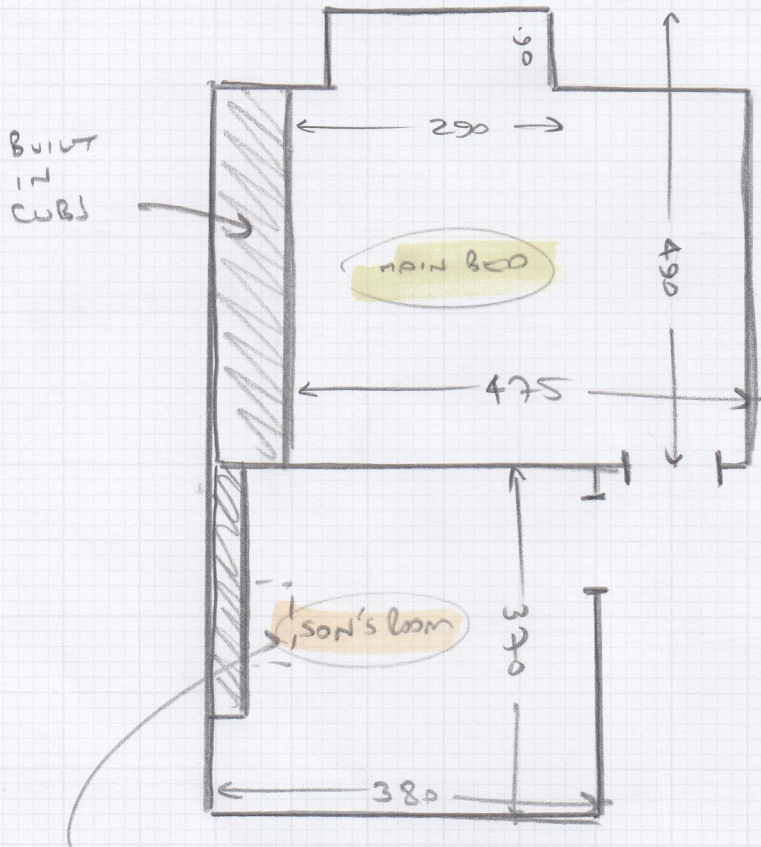 .90
BUILT
IN
CUBS
290
MAIN BED
490
475
SON'S ROOM
370
380